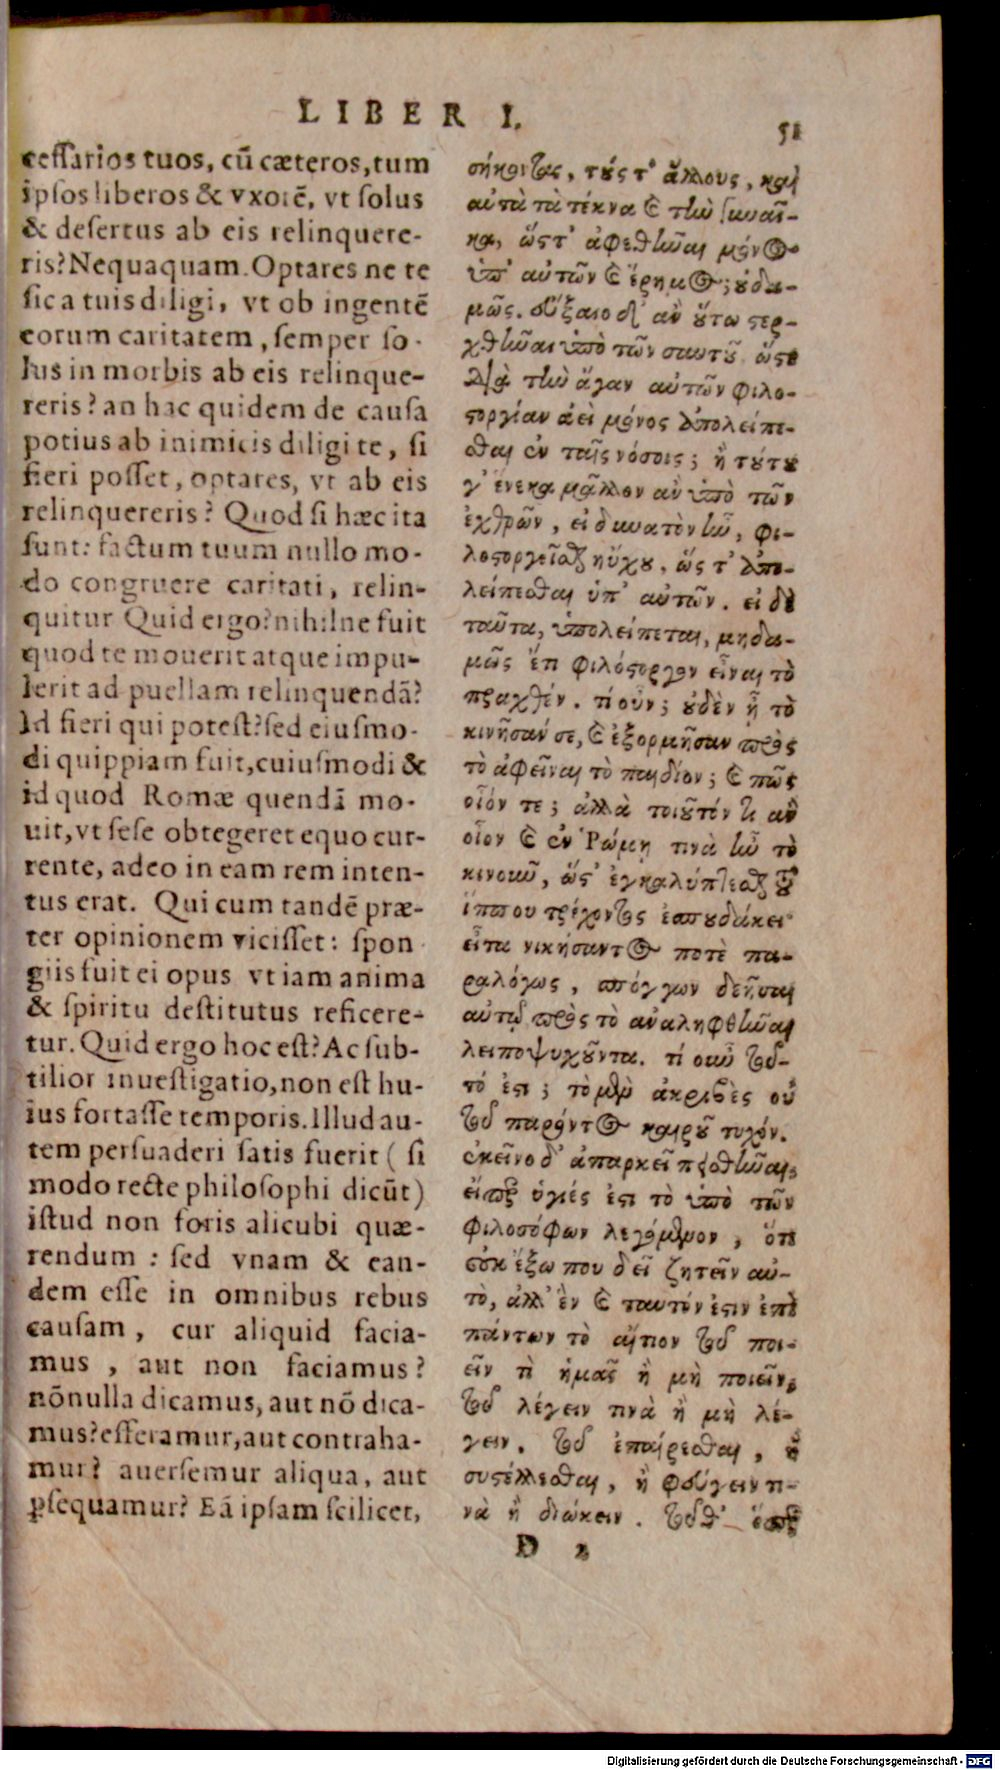 LIBER I.
51
cessarios tuos, cū cæteros, tum
ipsos liberos & vxorē, vt solus
& desertus ab eis relinquere-
ris? Nequaquam. Optares ne te
sic a tuis diligi, vt ob ingentē
eorum caritatem, semper so-
lus in morbis ab eis relinque-
reris? an hac quidem de causa
potius ab inimicis diligi te, si
fieri posset, optares, vt ab eis
relinquereris? Quod si hæc ita
sunt: factum tuum nullo mo-
do congruere caritati, relin-
quitur Quid ergo? nihilne fuit
quod te mouerit atque impu-
lerit ad puellam relinquendā?
Id fieri qui potest? sed eiusmo-
di quippiam fuit, cuiusmodi &
id quod Romæ quendā mo-
uit, vt sese obtegeret equo cur-
rente, adeo in eam rem inten-
tus erat. Qui cum tandē præ-
ter opinionem vicisset: spon
giis fuit ei opus vt iam anima
& spiritu destitutus reficere-
tur. Quid ergo hoc est? Ac sub-
tilior inuestigatio, non est hu-
ius fortasse temporis. Illud au-
tem persuaderi satis fuerit ( si
modo recte philosophi dicūt)
istud non foris alicubi quæ-
rendum : sed vnam & ean-
dem esse in omnibus rebus
causam, cur aliquid facia-
mus, aut non faciamus?
nōnulla dicamus, aut nō dica-
mus? efferamur, aut contraha-
mur? auersemur aliqua, aut
ꝑsequamur? Eā ipsam scilicet,
σήκοντας, τούς τ' ἄλλους, καὶ
αὐτὰ τὰ τέκνα καὶ τὴν γυναῖ-
κα, ὥστ' ἀφεθῆναι μόνος
ὑπ' αὐτῶν καὶ ἔρημος; οὐδα-
μῶς. εὔξαιο δ' ἂν οὕτω στερ-
χθῆναι ὑπὸ τῶν σαυτοῦ, ὥστε
διὰ τὴν ἄγαν αὐτῶν φιλο-
στοργίαν ἀεὶ μόνος ἀπολείπε-
σθαι ἐν ταῖς νόσοις; ἢ τούτου
γ' ἕνεκα μᾶλλον ἂν ὑπὸ τῶν
ἐχθρῶν, εἰ δυνατὸν ἦν, φι-
λοστοργεῖσθαι ηὔχου, ὥστ' ἀπο-
λείπεσθαι ὑπ' αὐτῶν. εἰ δὲ
ταῦτα, ὑπολείπεται, μηδα-
μῶς ἔτι φιλόστοργον εἶναι τὸ
πραχθέν. τί οὖν; οὐδὲν ἦ τὸ
κινῆσάν σε, καὶ ἐξορμῆσαν πρὸς
τὸ ἀφεῖναι τὸ παιδίον; καὶ πῶς
οἷόν τε; ἀλλὰ τοιοῦτόν τι ἂν
οἷον καὶ ἐν Ῥώμῃ τινὰ ἦν τὸ
κινοῦν, ὥστ' ἐγκαλύπτεσθαι τοῦ
ἵππου τρέχοντος ἐσπουδάκει
εἶτα νικήσαντος ποτὲ πα-
ραλόγως, σπόγγων δεῆσαι
αὐτῷ πρὸς τὸ ἀναληφθῆναι
λειποψυχοῦντα. τί οὖν τοῦ-
τό ἐστι; τὸ μὲν ἀκριβὲς οὐ
τοῦ παρόντος καιροῦ τυχόν.
ἐκεῖνο δ' ἀπαρκεῖ πεισθῆναι,
εἴπερ ὑγιές ἐστι τὸ ὑπὸ τῶν
φιλοσόφων λεγόμενον, ὅτι
οὐκ ἔξω που δεῖ ζητεῖν αὐ-
τὸ, ἀλλ' ἓν καὶ ταυτόν ἐστιν ἐπὶ
πάντων τὸ αἴτιον τοῦ ποι-
εῖν τὶ ἡμᾶς ἢ μὴ ποιεῖν,
τοῦ λέγειν τινὰ ἢ μὴ λέ-
γειν. τοῦ ἐπαίρεσθαι, ἢ
συστέλλεσθαι, ἢ φεύγειν τι-
νὰ ἢ διώκειν. τοῦθ' ὅπερ
D 2
Digitalisierung gefördert durch die Deutsche Forschungsgemeinschaft - DFG